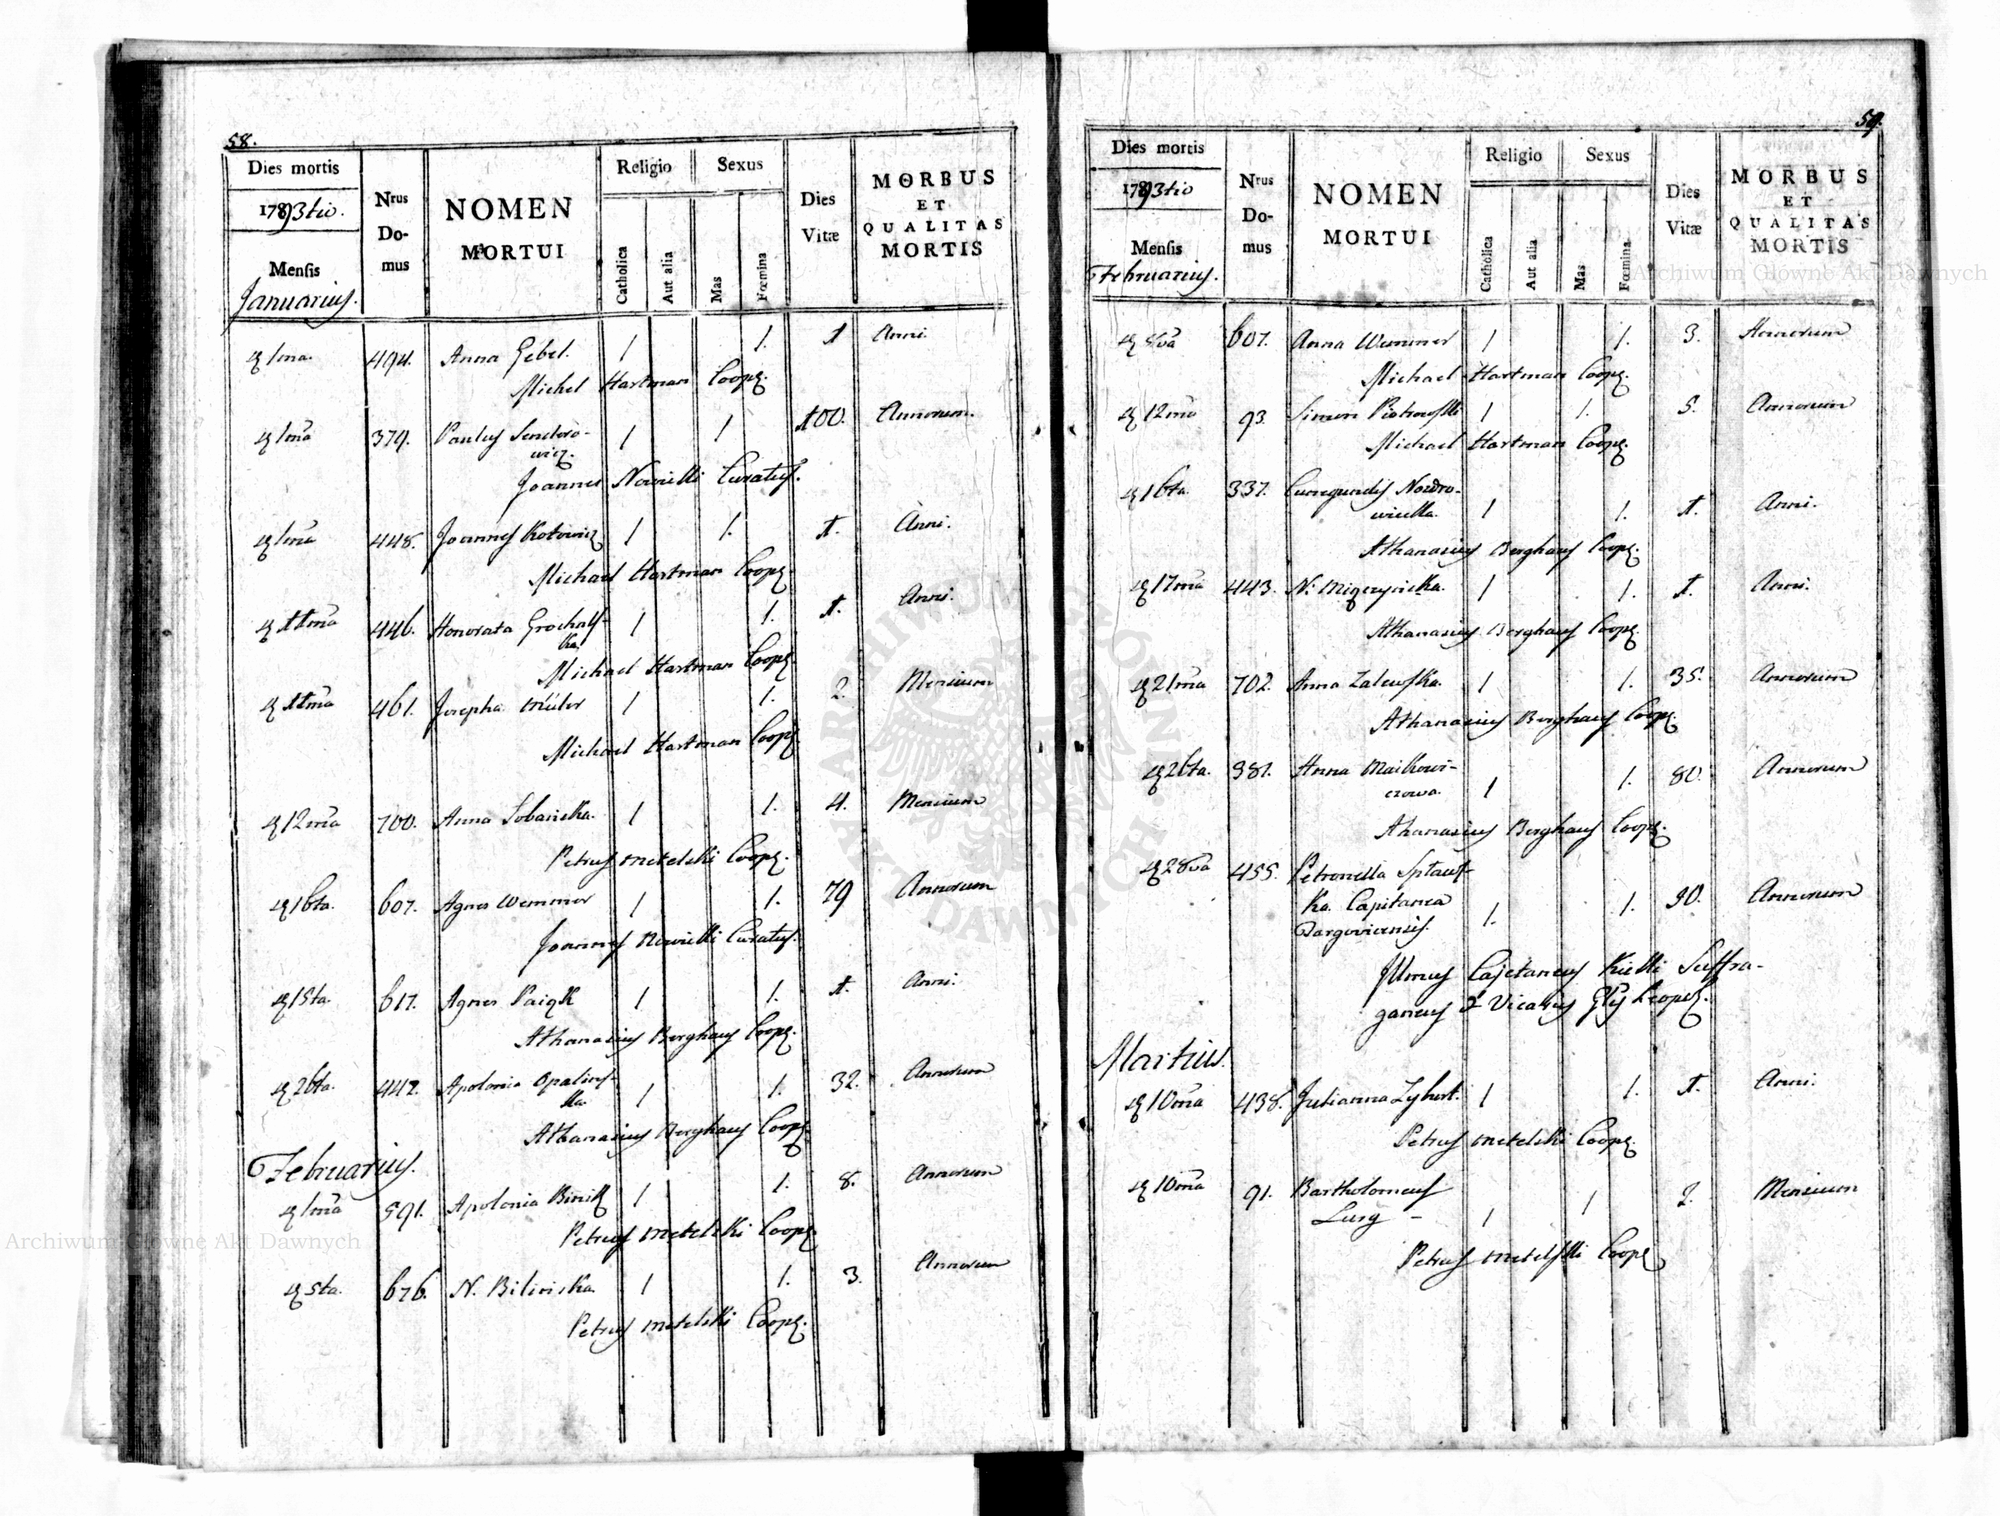 58.
Dies mortis
1793tio.
Mensis
Januarius.
Nrus
Do-
mus
NOMEN
MORTUI
Religio
Catholica
Aut alia
Sexus
Mas
Fœmina
Dies
Vitæ
MORBUS
ET
QUALITAS
MORTIS
1ma. 494. Anna Gebel. 1 1. 1 Anni.
Michel Hartman Coop.
1ma 379. Paulus Sendero-
wicz. 1 1 100. Annorum.
Joannes Nowicki Curatus.
1ma 448. Joannes Kotowicz 1 1. 1. Anni.
Michael Hartman Coop.
11ma 446. Honorata Grochals-
ka 1 1. 1. Anni.
Michael Hartman Coop.
11ma 461. Josepha Müler 1 1. 2. Mensium
Michael Hartman Coop.
12ma 700. Anna Sobanska. 1 1. 4. Mensium
Petrus Metelski Coop.
16ta. 607. Agnes Wemmer 1 1. 79 Annorum
Joannes Nowicki Curatus.
15ta. 617. Agnes 1 1. 1. Anni.
Athanasius Berghaus Coop.
26ta. 442. Apolonia Opalins-
ka. 1 1. 32. Annorum
Athanasius Berghaus Coop.
Februarius.
1ma 591. Apolonia 1 1. 8. Annorum
Petrus Metelski Coop.
5ta. 676. N. Bilinska. 1 1. 3. Annorum
Petrus Metelski Coop.
59.
Dies mortis
1793tio
Mensis
Februarius.
Nrus
Do-
mus
NOMEN
MORTUI
Religio
Catholica
Aut alia
Sexus
Mas
Fœmina
Dies
Vitæ
MORBUS
ET
QUALITAS
MORTIS
8va 607. Anna Wemmer 1 1. 3. Annorum
Michael Hartman Coop.
12ma 93. Simon Piotrowski 1 1. 5. Annorum
Michael Hartman Coop.
16ta. 337. Cunegundis
1 1. 1. Anni.
Athanasius Berghaus Coop.
17ma 443. N. 1 1. 1. Anni.
Athanasius Berghaus Coop.
21ma 702. Anna Zalewska. 1 1. 35. Annorum
Athanasius Berghaus Coop.
26ta. 381. Anna Maikowi-
czowa. 1 1. 80. Annorum
Athanasius Berghaus Coop.
28va 455. Petronella
ka. Capitanea 1. 1. 90. Annorum
Illmus Cajetanus Kicki Suffra-
ganeus & Vicarius Leopol.
Martius.
10ma 438. Julianna Zybert. 1 1. 1. Anni.
Petrus Metelski Coop.
10ma 91. Bartholomeus
Lurg - 1 1 2. Mensium
Petrus Metelski Coop.
Archiwum Główne Akt Dawnych
Archiwum Główne Akt Dawnych
ARCHIWUM GŁÓWNE AKT DAWNYCH